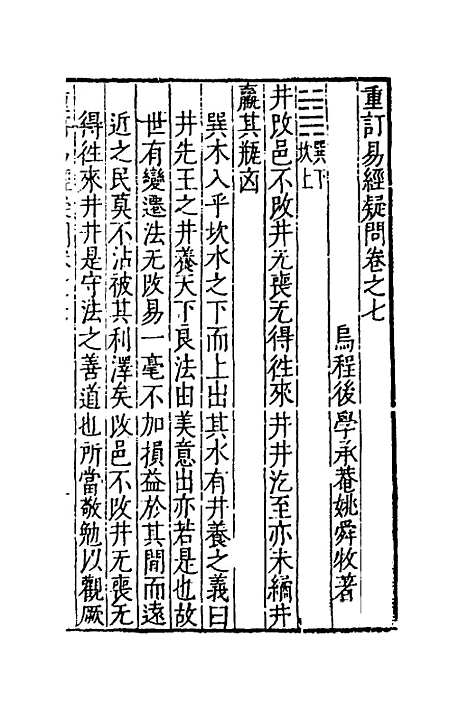 重訂易經疑問卷之七
烏程後學承菴姚舜牧著
巽下坎上
井改邑不改井无喪无得徃來井井汔至亦未繘井
羸其瓶凶
巽木入乎坎水之下而上出其水有井養之義曰
井先王之井養天下良法由美意出亦若是也故
世有變遷法无改易一毫不加損益於其間而遠
近之民莫不沾被其利澤矣改邑不改井无喪无
得徃來井井是守法之善道也所當敬勉以觀厥